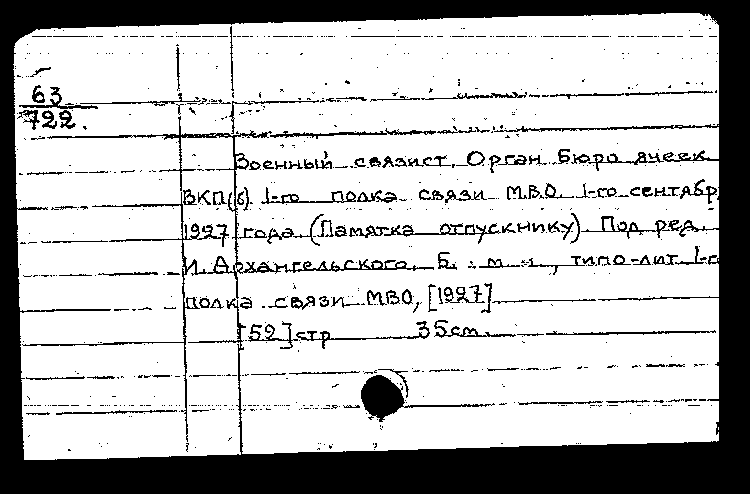 63
722.
Военный связист. Орган Бюро ячеек
ВКП(б) 1-го полка связи М.В.О. 1-го сентябр
1927 года. (Памятка отпускнику). Под ред.
И. Архангельского. Б. м. и., типо-лит. 1-го
полка связи МВО, [1927]
[52] стр 35см.